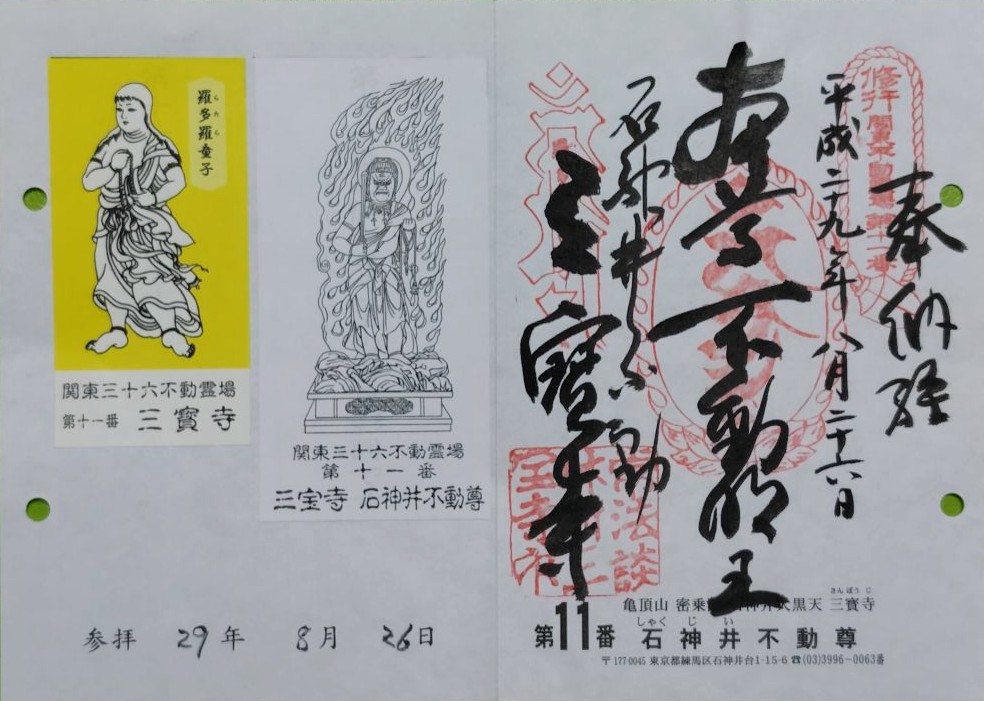 羅多羅童子
らたらどうじ
関東三十六不動霊場
第十一番 三寳寺
関東三十六不動霊場
第十一番
三宝寺 石神井不動尊
参拝 29年 8月 26日
奉納経
平成二十九年八月二十六日
本尊不動明王
石神井不動
三寳寺
亀頂山 密乗院 石神井大黒天 三寳寺
さんぽうじ
第11番 石神井不動尊
しゃくじい
〒177-0045 東京都練馬区石神井台1-15-6 ☎(03)3996-0063番